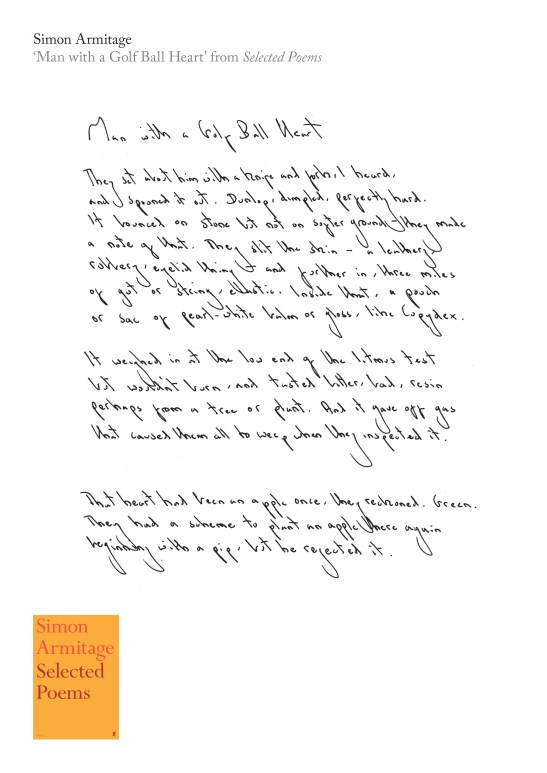 Simon Armitage
‘Man with a Golf Ball Heart’ from Selected Poems
Man with a Golf Ball Heart
They set about him with a knife and fork, I heard,
and spooned it out. Dunlop, dimpled, perfectly hard.
It bounced on stone but not on softer ground – they made
a note of that. They slit the skin – a leathery,
rubbery, eyelid thing – and further in, three miles
of gut or string, elastic. Inside that, a pouch
or sac of pearl-white balm or gloss, like Copydex.
It weighed in at the low end of the litmus test
but wouldn't burn, and tasted bitter, bad, resin
perhaps from a tree or plant. And it gave off gas
that caused them all to weep when they inspected it.
That heart had been an apple once, they reckoned. Green.
They had a scheme to plant an apple there again
beginning with a pip, but he rejected it.
Simon
Armitage
Selected
Poems